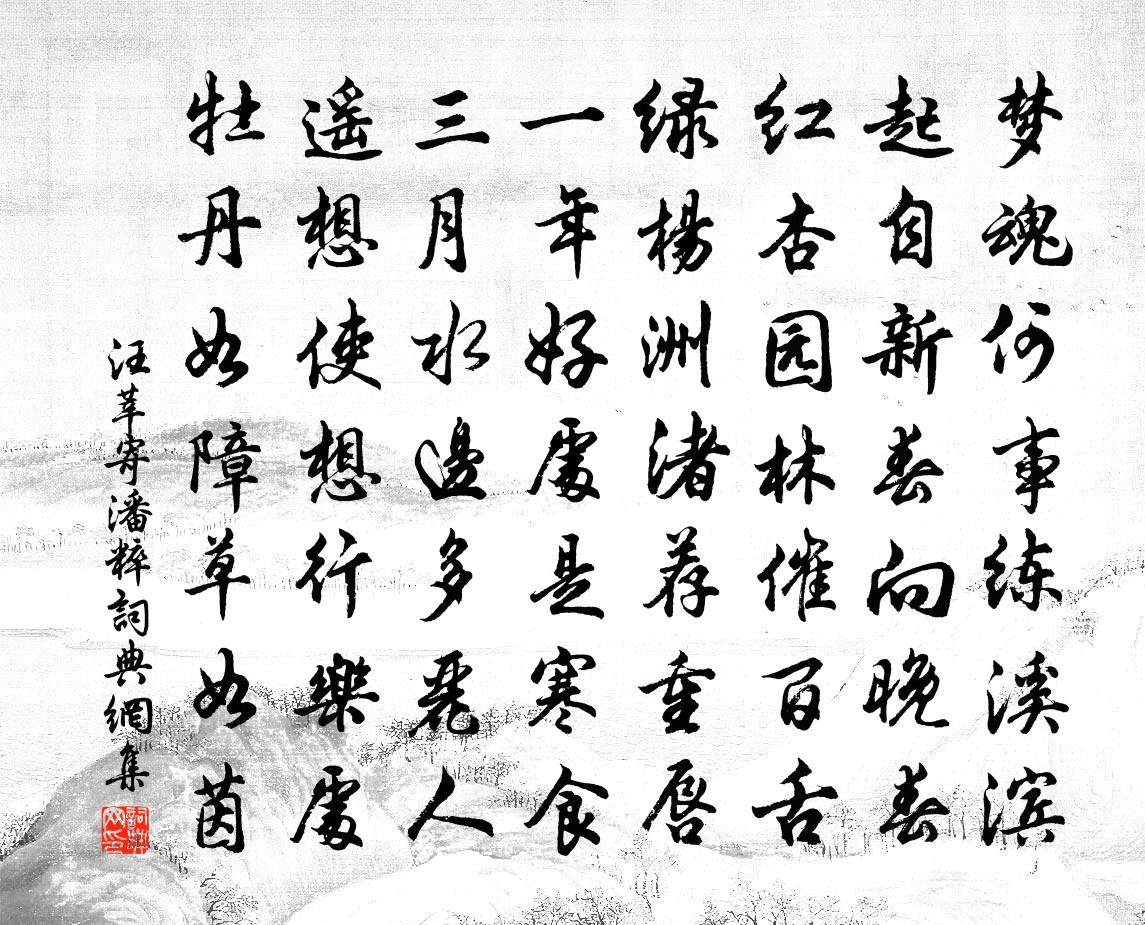 梦魂何事练溪滨
起自新春向晚春
红杏园林催百舌
绿楊洲渚荐重唇
一年好處是寒食
三月水邊多麗人
遥想使想行樂處
牡丹如障草如茵
汪莘寄潘粹詞典網集